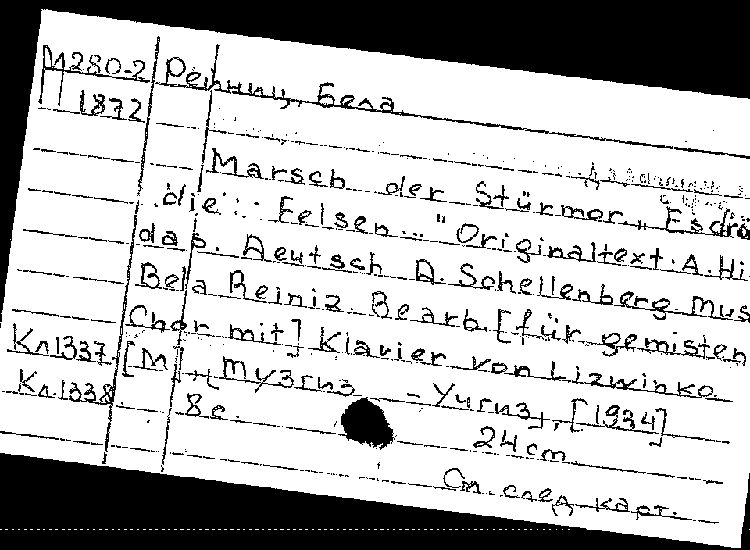 М280-2 Рейниц, Бела.
1872
Marsch der Stürmer. „Es drö
die... Felsen..." Originaltext: A. Hi
das. Deutsch A. Schellenberg Mus
Bela Reiniz. Bearb. [für gemisten
Chor mit] Klavier von Lizwinko
Кл1337. [М], [Музгиз - Учгиз], [1934]
Кл.1338 8с. 24 cm
См. след карт.